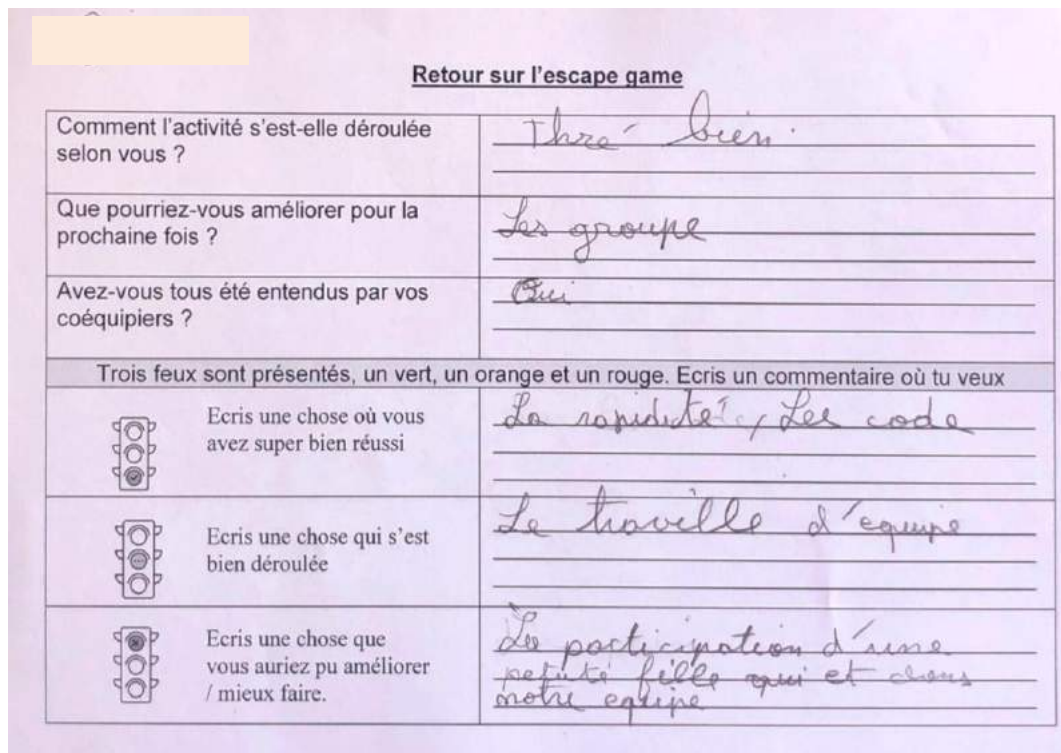 Retour sur l'escape game
Comment l'activité s'est-elle déroulée
selon vous ?
Thré bien.
Que pourriez-vous améliorer pour la
prochaine fois ?
Les groupe
Avez-vous tous été entendus par vos
coéquipiers ?
Oui
Trois feux sont présentés, un vert, un orange et un rouge. Ecris un commentaire où tu veux
Ecris une chose où vous
avez super bien réussi
La rapidité, Les code
Ecris une chose qui s'est
bien déroulée
Le traville d'equipe
Ecris une chose que
vous auriez pu améliorer
/ mieux faire.
La participation d'une
petite fille qui et dans
notre equipe